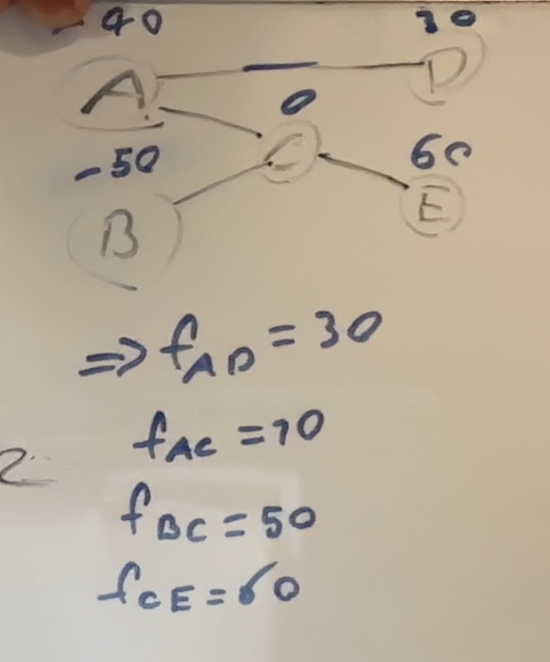 -40 30
A D
0
C
-50 60
B E
⇒ fAD = 30
fAC = 10
fBC = 50
fCE = 60